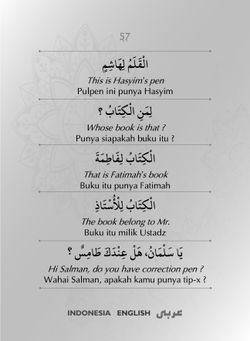 57
الْقَلَمُ لِهَاشِمٍ
This is Hasyim's pen
Pulpen ini punya Hasyim
لِمَنِ الْكِتَابُ ؟
Whose book is that ?
Punya siapakah buku itu ?
الْكِتَابُ لِفَاطِمَةَ
That is Fatimah's book
Buku itu punya Fatimah
الْكِتَابُ لِلْأُسْتَاذِ
The book belong to Mr.
Buku itu milik Ustadz
يَا سَلْمَانُ، هَلْ عِنْدَكَ طَامِسٌ ؟
Hi Salman, do you have correction pen ?
Wahai Salman, apakah kamu punya tip-x ?
INDONESIA ENGLISH عربي